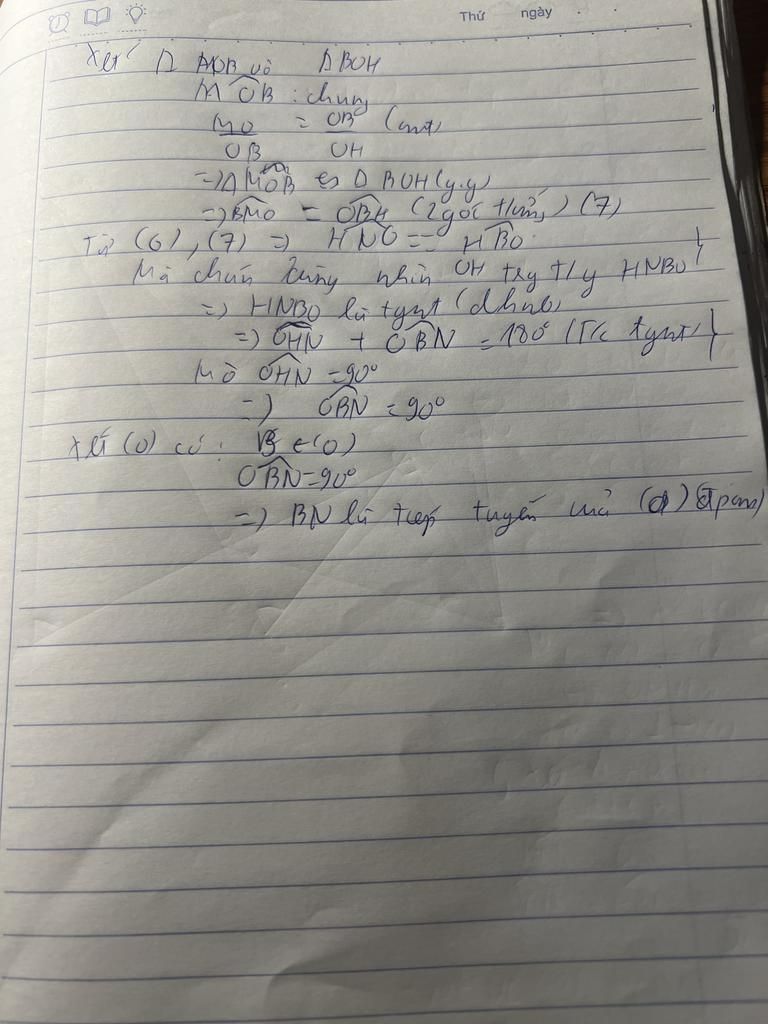 Thứ ngày
Xét Δ MOB và Δ BOH
MOB : chung
MO/OB = OB/OH (cmt)
=> Δ MOB ∽ Δ BOH (g.g)
=> BMO = OBH (2 góc t/ứng) (7)
Từ (6), (7) => HNO = HBO
Mà chúng cùng nhìn OH trg t/g HNBO
=> HNBO là tgnt (dhnb)
=> OHN + OBN = 180° (T/c tgnt)
Mà OHN = 90°
=> OBN = 90°
Xét (O) có : B ∈ (O)
OBN = 90°
=> BN là tiếp tuyến của (O) (đpcm)